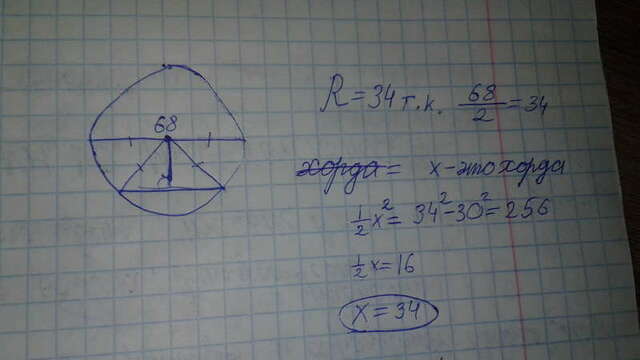 68
x
R = 34 т.к. 68/2 = 34
хорда = x - это хорда
1/2 x² = 34² - 30² = 256
1/2 x = 16
x = 34